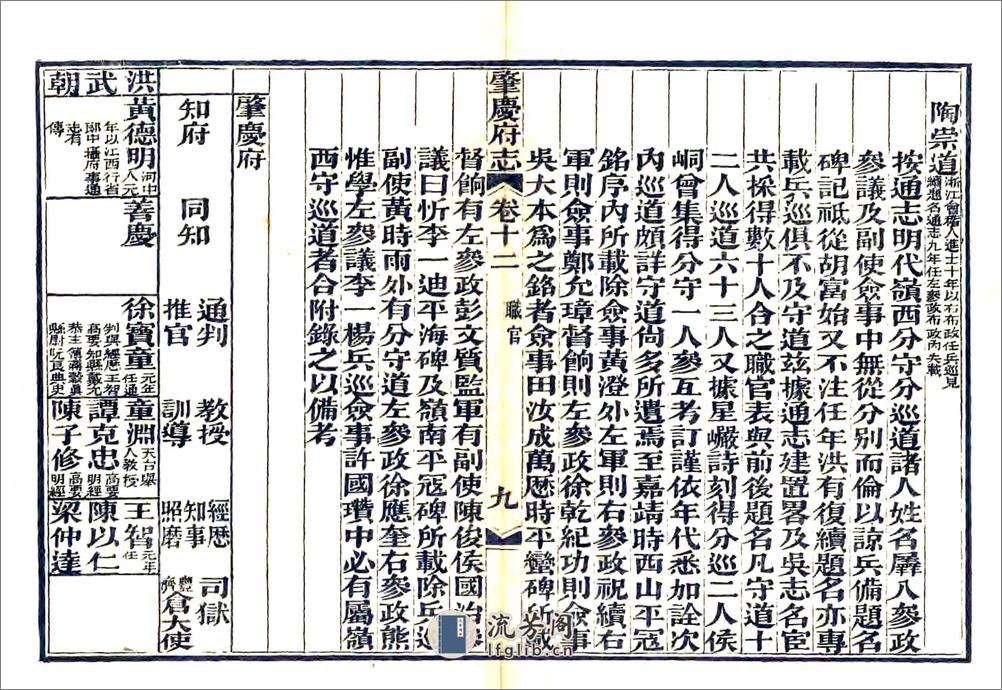 陶崇道浙江會稽人進士十年以右布政任兵巡見
續題名通志九年任左參政布政內失載
按通志明代嶺西分守分巡道諸人姓名羼入參政
參議及副使僉事中無從分別而倫以諒兵備題名
碑記祗從胡富始又不注任年洪有復續題名亦專
載兵巡俱不及守道茲據通志建置畧及吳志名宦
共採得數十人合之職官表與前後題名凡守道十
二人巡道六十三人又據星巖詩刻得分巡二人侯
峒曾集得分守一人參互考訂謹依年代悉如詮次
內巡道頗詳守道尚多所遺焉至嘉靖時西山平寇
銘序內所載除僉事黃澄外左軍則右參政祝續右
軍則僉事鄭允璋督餉則左參政徐乾紀功則僉事
吳大本為之銘者僉事田汝成萬歷時平蠻碑所載
肇慶府志
卷十二
職官
九
督餉有左參政彭文質監軍有副使陳俊侯國治
議曰忻李一迪平海碑及嶺南平寇碑所載除兵巡
副使黃時雨外有分守道左參政徐應奎右參政熊
惟學左參議李一楊兵巡僉事許國瓚中必有屬嶺
西守巡道者合附錄之以備考
肇慶府
知府
同知
通判
推官
教授
訓導
經歷
知事
照磨
司獄
豐濟倉大使
洪武朝
黃德明河中人元
年以江西行省
郎中攝府事通
志有
傳
善慶
徐寶童元年任通
判與經歷王智
高要知縣戴元
恭主簿蔣毅眞
縣尉阮良典史
童淵天台舉
人教授
譚克忠高要
明經
陳子修高要
明經
王智元年
任
陳以仁
梁仲達
流芳阁
lfglib.cn